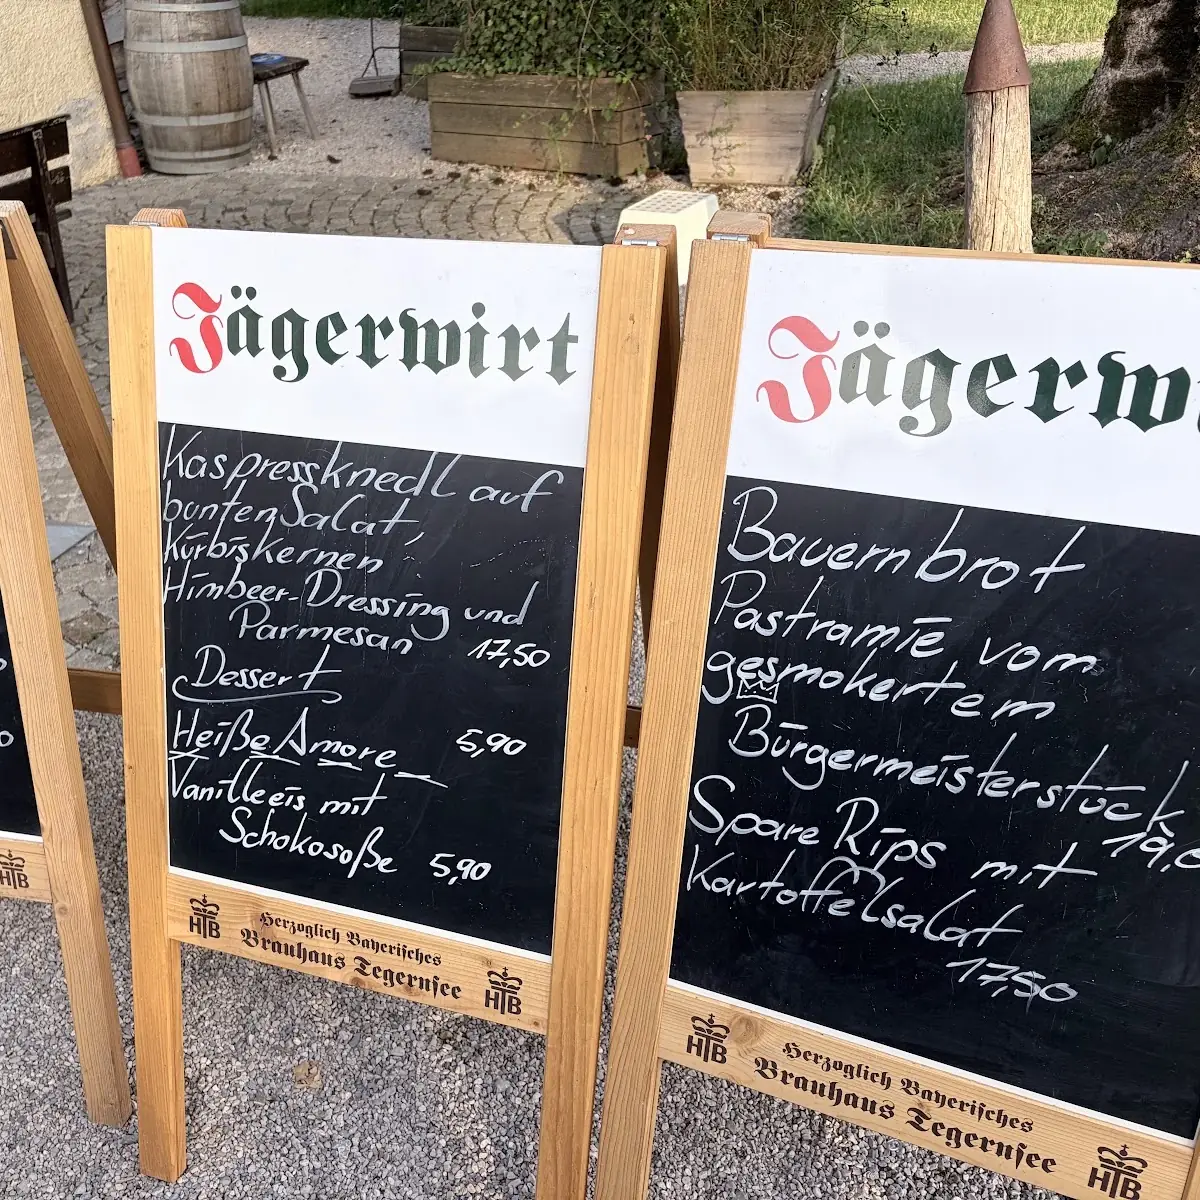 Jägerwirt
Kaspressknedl auf
bunten Salat,
Kürbiskernen
Himbeer-Dressing und
Parmesan 17,50
Dessert
Heiße Amore 5,90
Vanilleeis mit
Schokosoße 5,90
HTB Herzoglich Bayerisches HTB
Brauhaus Tegernsee
Bauernbrot
Pastramie vom
gesmokertem
Bürgermeisterstück
Spare Rips mit
Kartoffelsalat
17,50
HTB Herzoglich Bayerisches HTB
Brauhaus Tegernsee
HTB